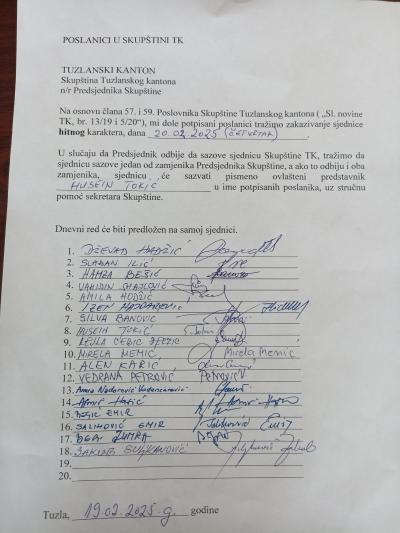 POSLANICI U SKUPŠTINI TK
TUZLANSKI KANTON
Skupština Tuzlanskog kantona
n/r Predsjednika Skupštine
Na osnovu člana 57. i 59. Poslovnika Skupštine Tuzlanskog kantona ( „Sl. novine
TK, br. 13/19 i 5/20“), mi dole potpisani poslanici tražimo zakazivanje sjednice
hitnog karaktera, dana 20.02.2025 (ČETVRTAK)
U slučaju da Predsjednik odbije da sazove sjednicu Skupštine TK, tražimo da
sjednicu sazove jedan od zamjenika Predsjednika Skupštine, a ako to odbiju i oba
zamjenika, sjednicu će sazvati pismeno ovlašteni predstavnik
HUSEIN TOKIĆ u ime potpisanih poslanika, uz stručnu
pomoć sekretara Skupštine.
Dnevni red će biti predložen na samoj sjednici.
1. DŽEVAD HADŽIĆ
2. SLAĐAN ILIĆ
3. HAMZA BEŠIĆ
4. VAHIDIN
5. AMILA HODŽIĆ
6.
7. SILVA BANOVIĆ
8. HUSEIN TOKIĆ
9.
10. MIRELA MEMIĆ Mirela Memić
11. ALEN KARIĆ
12. VEDRANA PETROVIĆ Petrović
13.
14.
15. EMIR
16. SALIHOVIĆ EMIR
17. ZUMRA
18.
19.
20.
Tuzla, 19.02.2025.g. godine